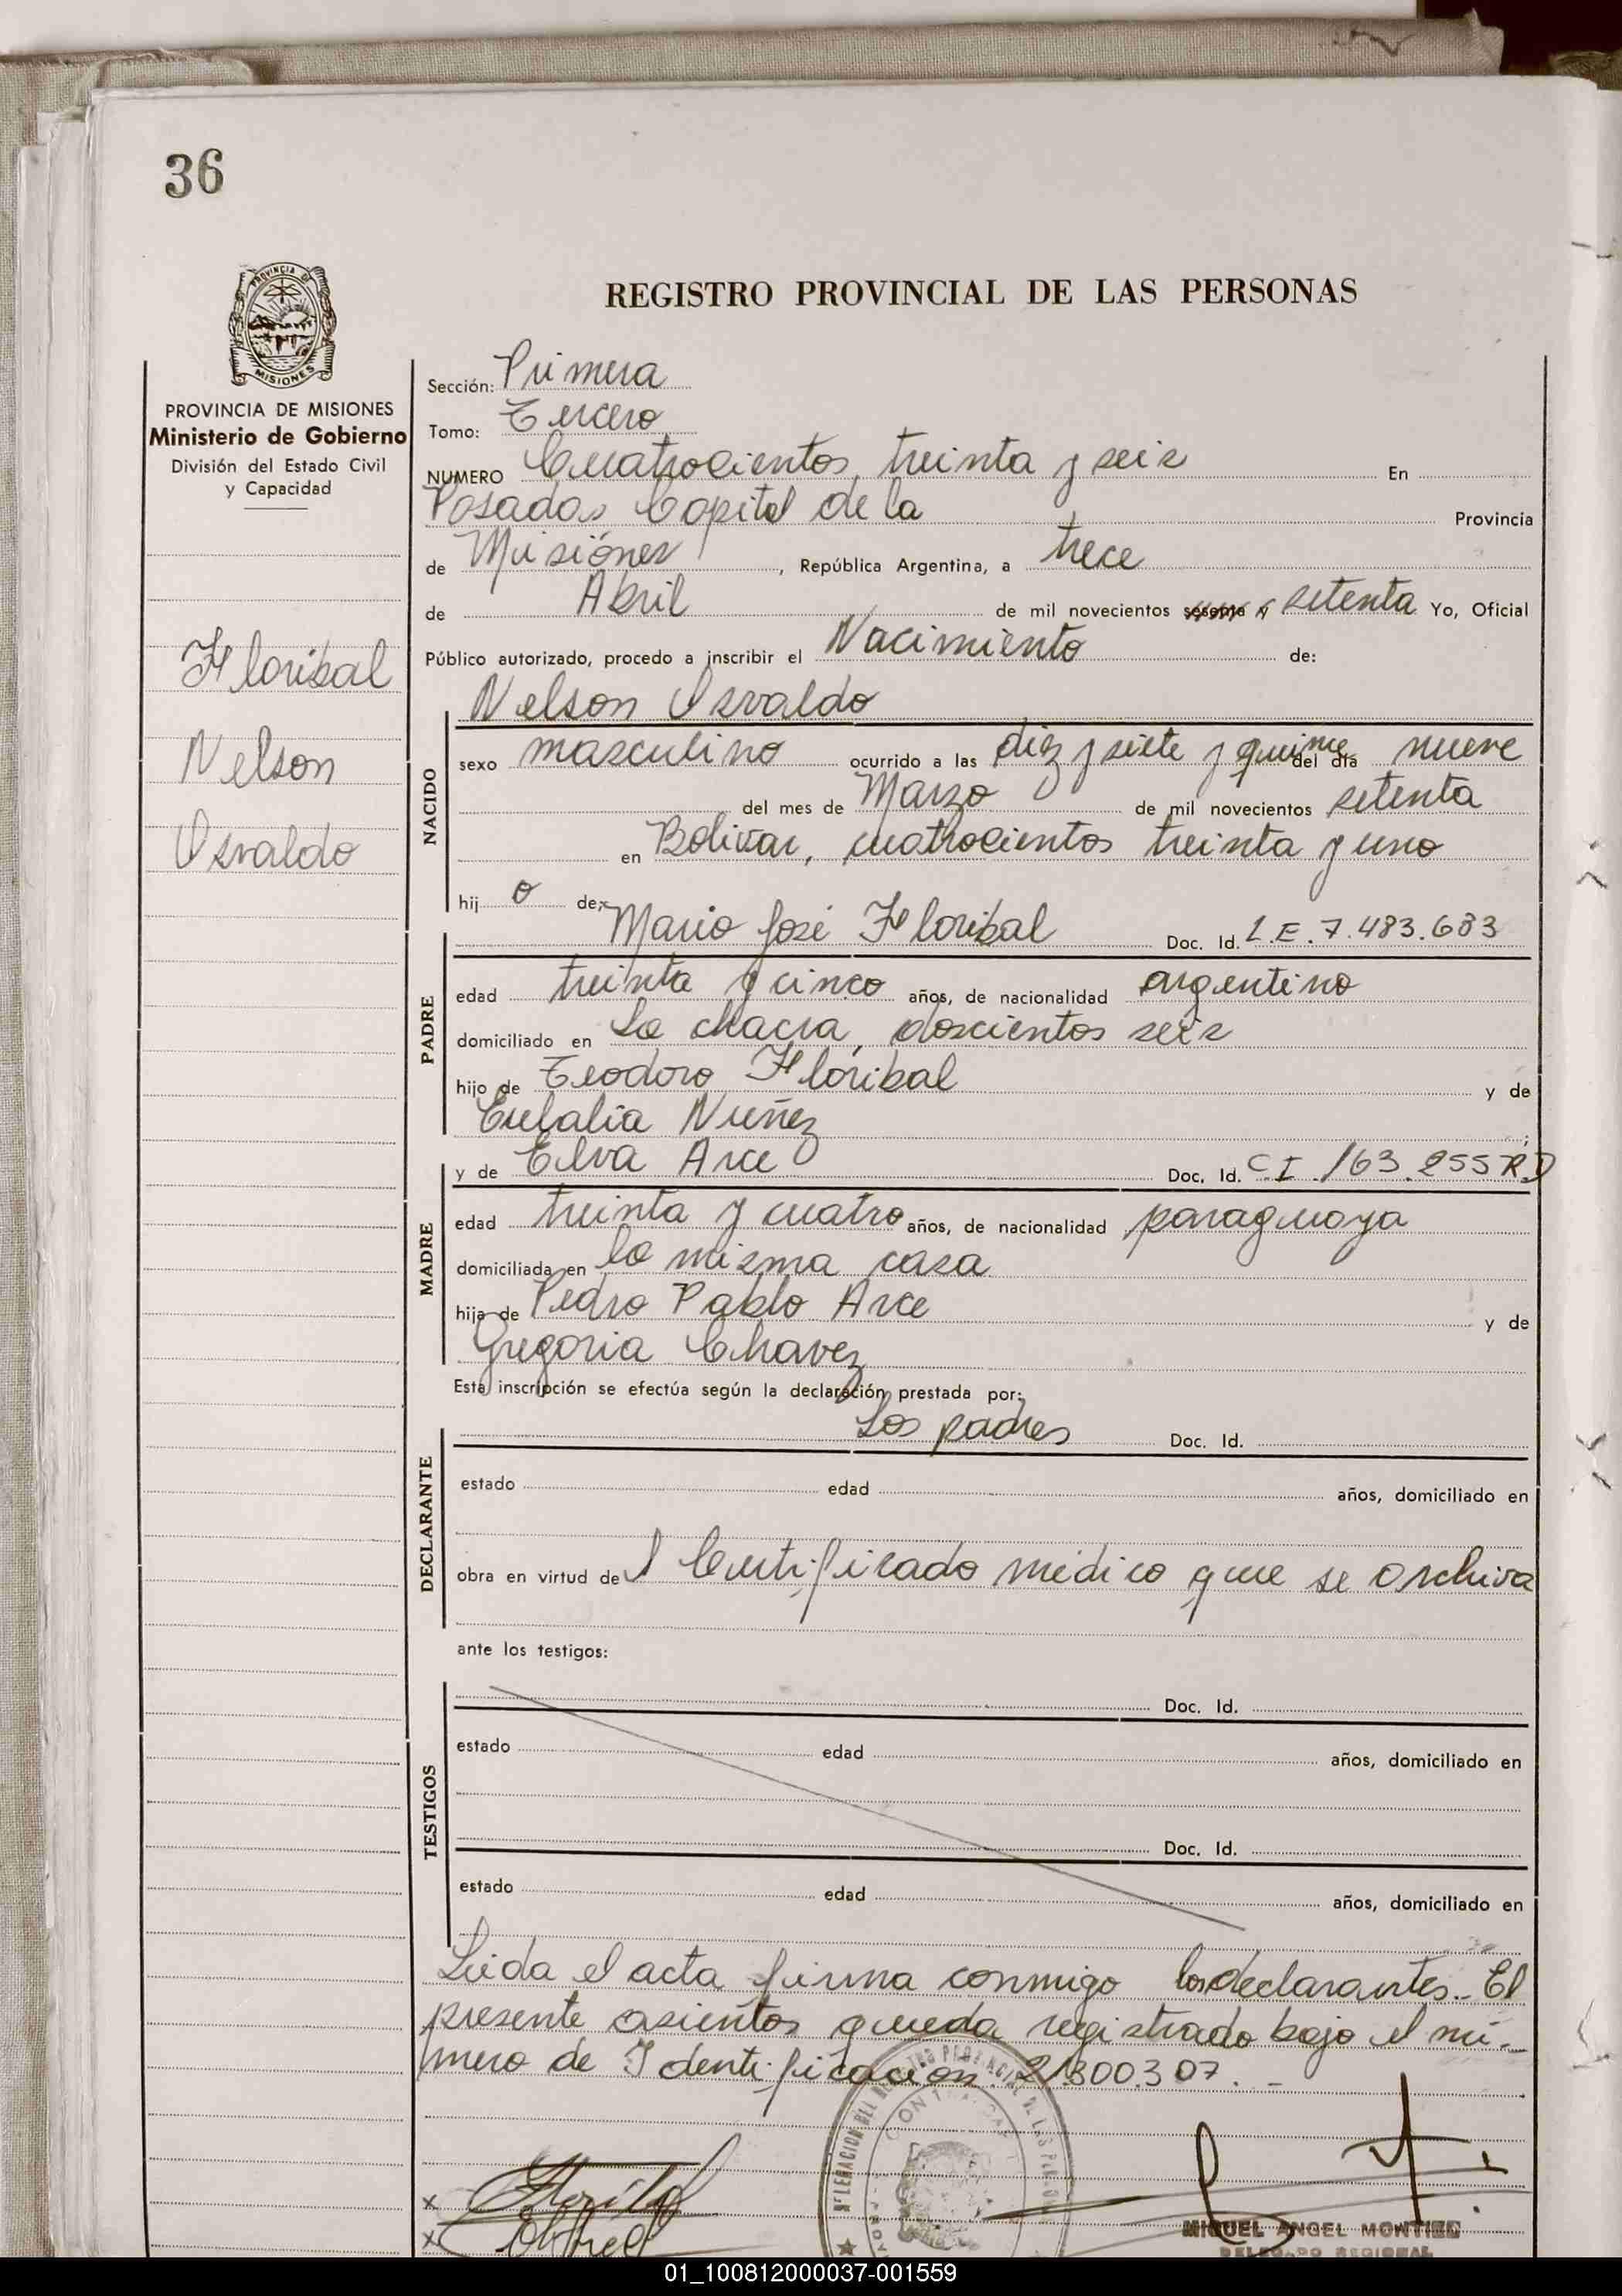 36
PROVINCIA DE
MISIONES
REGISTRO PROVINCIAL DE LAS PERSONAS
PROVINCIA DE MISIONES
Ministerio de Gobierno
División del Estado Civil
y Capacidad
Floribal
Nelson
Osvaldo
Sección: Primera
Tomo: Tercero
NUMERO Cuatrocientos treinta y seis En
Posadas Capital de la Provincia
de Misiónes, República Argentina, a trece
de Abril de mil novecientos setenta Yo, Oficial
Público autorizado, procedo a inscribir el Nacimiento de:
Nelson Osvaldo
NACIDO
sexo masculino ocurrido a las diez y siete y quince del día nueve
del mes de Marzo de mil novecientos setenta
en Bolivar, cuatrocientos treinta y uno
hij o de:
Mario José Floribal Doc. Id. L.E. 7.483.683
PADRE
edad treinta y cinco años, de nacionalidad argentino
domiciliado en La chacra, doscientos seis
hijo de Teodoro Floribal y de
Eulalia Nuñez
y de Elva Arce Doc. Id. C.I. 163.255 RD
MADRE
edad treinta y cuatro años, de nacionalidad paraguaya
domiciliada en la misma casa
hija de Pedro Pablo Arce y de
Gregoria Chavez
Esta inscripción se efectúa según la declaración prestada por:
Los padres Doc. Id.
DECLARANTE
estado edad años, domiciliado en
obra en virtud del Certificado médico que se archiva
ante los testigos:
Doc. Id.
TESTIGOS
estado edad años, domiciliado en
Doc. Id.
estado edad años, domiciliado en
Leida el acta firma conmigo los declarantes.- El
presente asientos queda registrado bajo el nú-
mero de Identificación 21.300.307.-
MIGUEL ANGEL MONTIEL
DELEGADO REGIONAL
01_100812000037-001559